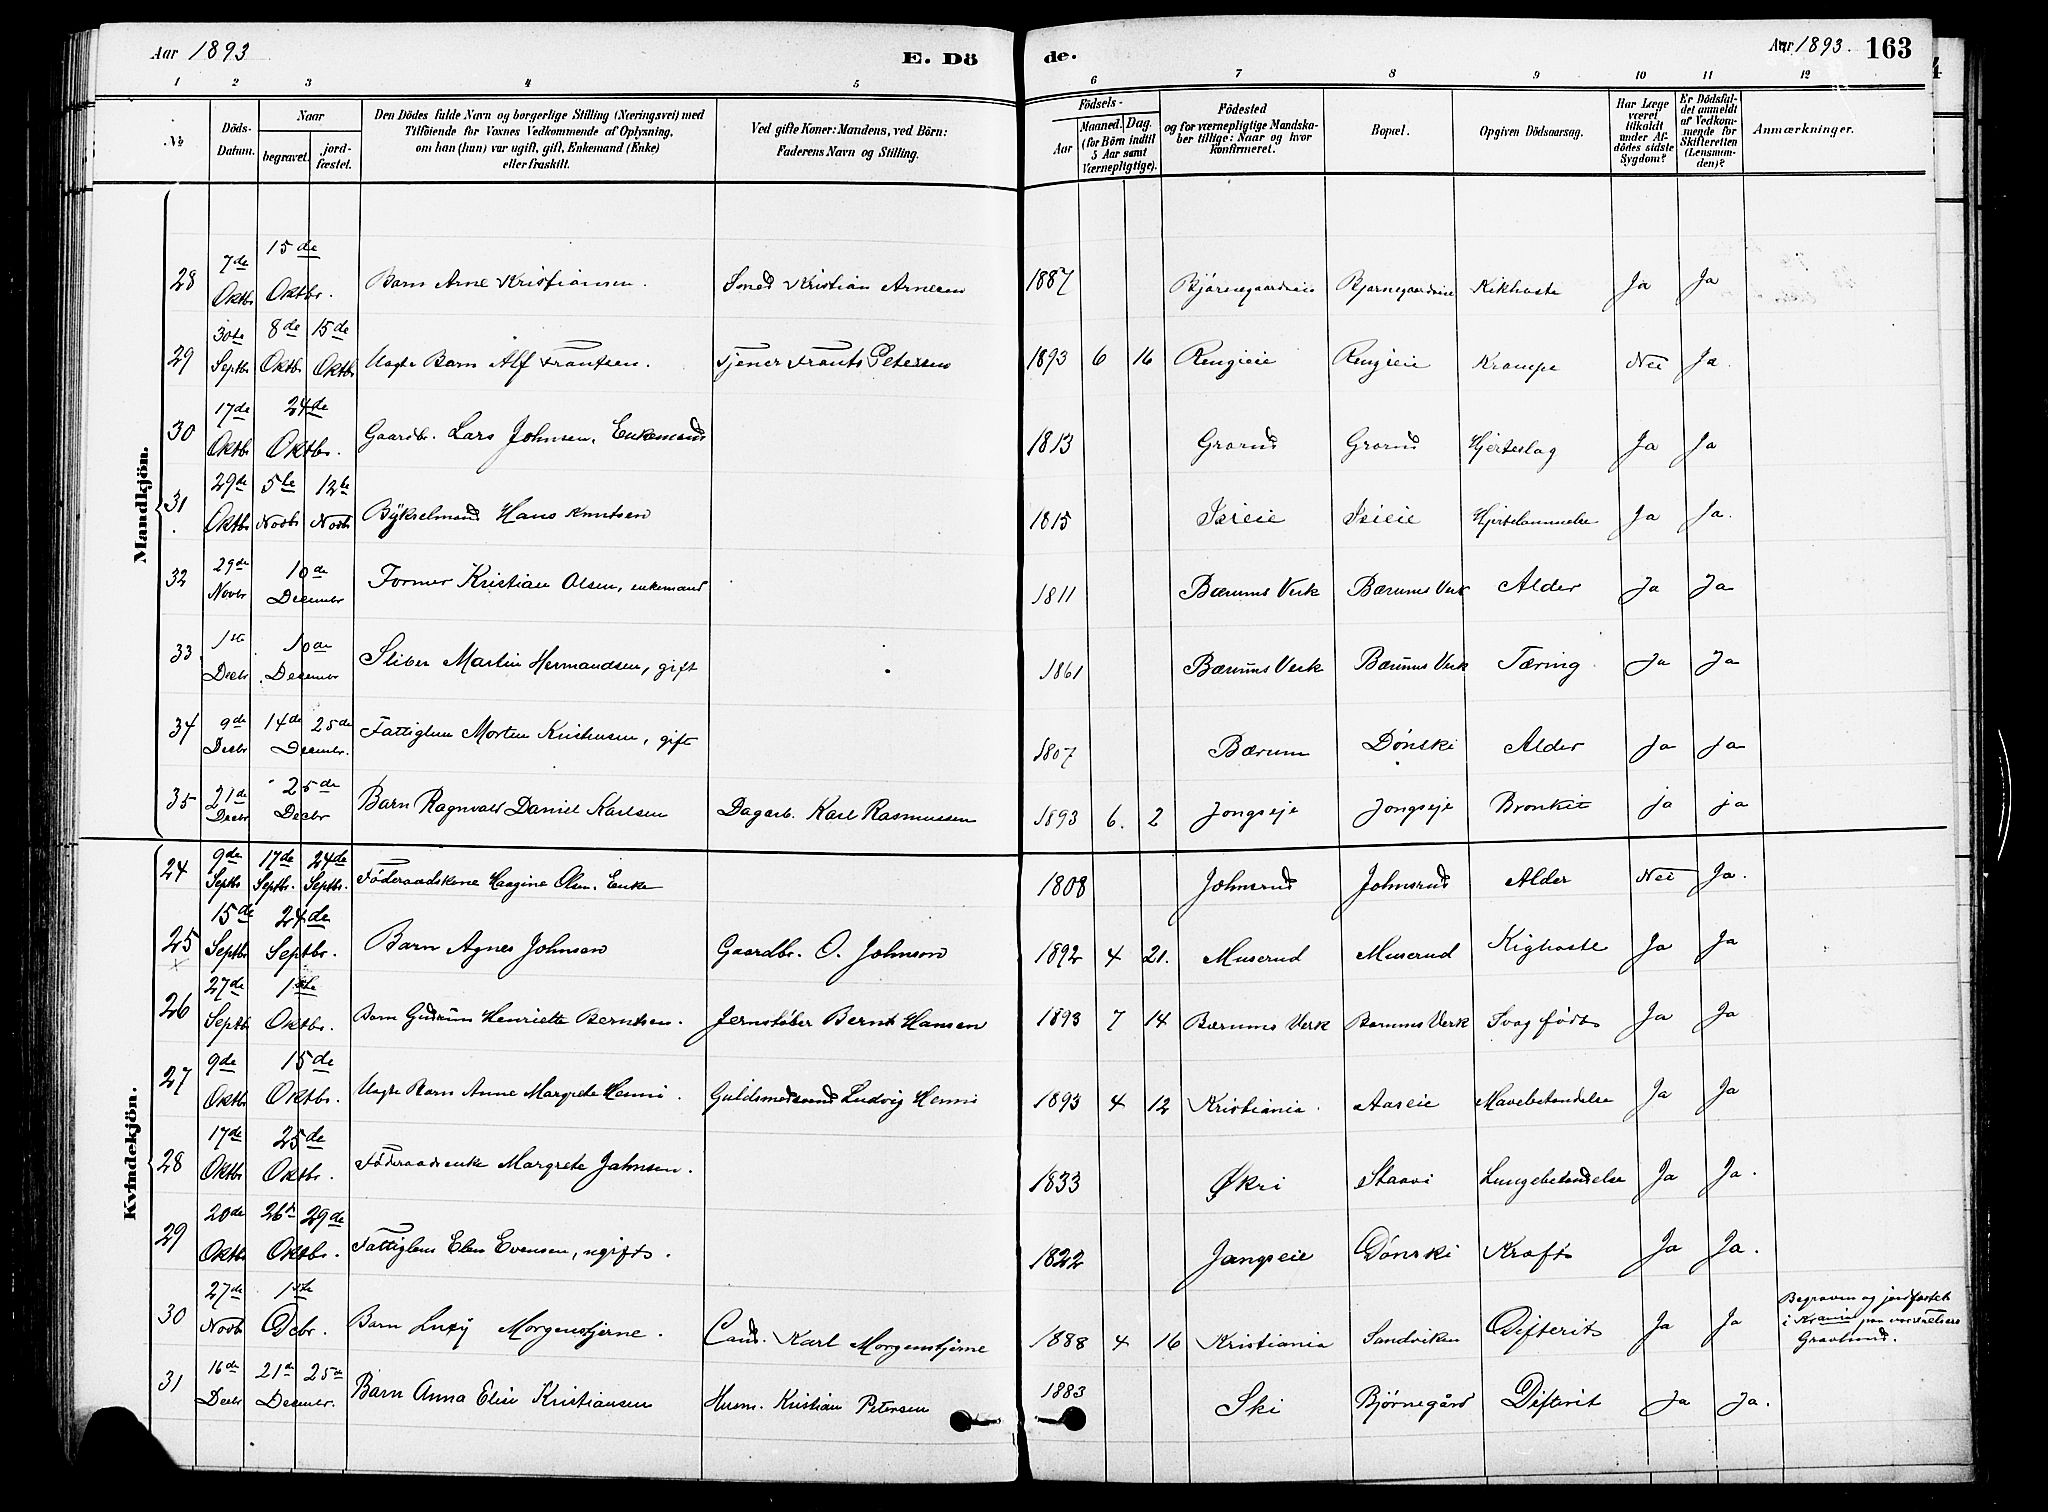 Aar 1893
E. Dö
de.
Aar 1893. 163
1 2 3 4 5 6 7 8 9 10 11 12
No
Döds-Datum.
Naar
begravet.
jord-fæstet.
Den Dödes fulde Navn og borgerlige Stilling (Næringsvei) med
Tilföiende for Voxnes Vedkommende af Oplysning,
om han (hun) var ugift, gift, Enkemand (Enke)
eller fraskilt.
Ved gifte Koner: Mandens, ved Börn:
Faderens Navn og Stilling.
Födsels-
Aar
Maaned. Dag.
(for Börn indtil
5 Aar samt
Værnepligtige).
Födested
og for værnepligtige Mandska-
ber tillige: Naar og hvor
konfirmeret.
Bopæl.
Opgiven Dödsaarsag.
Har Læge
været
tilkaldt
under Af-
dödes sidste
Sygdom?
Er Dödsfal-
det anmeldt
af Vedkom-
mende for
Skifteretten
(Lensman-
den)?
Anmærkninger.
Mandkjön.
28 7de Oktbr 15de Oktbr. Barn Arne Kristiansen. Smed Kristian Arnesen 1887 Bjørnegaardseie Bjørnegaardseie Kikhoste Ja Ja
29 30te Septbr 8de Oktbr 15de Oktbr Uægte Barn Alf Frantsen. Tjener Frants Petersen 1893 6 16 Rengieie Rengieie Krampe Nei Ja.
30 17de Oktbr 24de Oktbr. Gaardbr. Lars Johnsen, Enkemand 1813 Grorud Grorud Hjerteslag Ja Ja
31 29de Oktbr 5te Novbr 12te Novbr Bykselmand Hans Knutsen 1815 Isieie Isieie Hjertelammelse Ja Ja.
32 29de Novbr 10de Decembr Former Kristian Olsen, enkemand 1811 Bærums Verk Bærums Verk Alder Ja Ja
33 1ste Decbr 10de Decembr Sliber Martin Hermandsen, gift 1861 Bærums Verk Bærums Verk Tæring Ja Ja
34 9de Decbr 14de 25de Decembr. Fattiglem Morten Kristiansen, gift 1807 Bærum Dønski Alder Ja Ja
35 21de Decbr 25de Decbr Barn Ragnvald Daniel Karlsen Dagarb. Karl Rasmussen 1893 6. 2 Jongseje Jongseje Bronkit ja ja
Kvindekjön.
24 9de Septbr 17de Septbr. 24de Septbr. Føderaadskone Haagine Olsen. Enke 1808 Johnsrud Johnsrud Alder Nei Ja.
25 15de Septbr 24de Septbr. Barn Agnes Johnsen Gaardbr. O. Johnson 1892 4 21. Muserud Muserud Kighoste Ja Ja
26 27de Septbr 1ste Oktbr. Barn Gudrun Henriette Berntsen. Jernstøber Bernt Hansen 1893 7 14 Bærums Verk Bærums Verk Svag født Ja Ja
27 9de Oktbr 15de Oktbr. Uægte Barn Anne Margrete Henni. Guldsmedsvend Ludvig Henni 1893 4 12 Kristiania. Aaseie Mavebetændelse Ja Ja
28 17de Oktbr 25de Oktbr. Føderaadsenke Margrete Jahnsen. 1833 Økri Staavi Lungebetændelse Ja Ja.
29 20de Oktbr 26de 29de Oktbr. Fattiglem Elen Evensen, ugift. 1822 Jongseie Dønski Kræft Ja Ja.
30 27de Novbr 1ste Dcbr. Barn Morgenstjerne. Cand. Karl Morgenstjerne 1888 4 16 Kristiania Sandviken Difterit Ja Ja Begraven og jordfæstet i Krania paa vor Frelsers Gravlund.
31 16de Decbr 21de 25de Decembr. Barn Anna Elise Kristiansen Husm. Kristian Petersen 1883 Ski Bjørnegård Difterit Ja Ja.